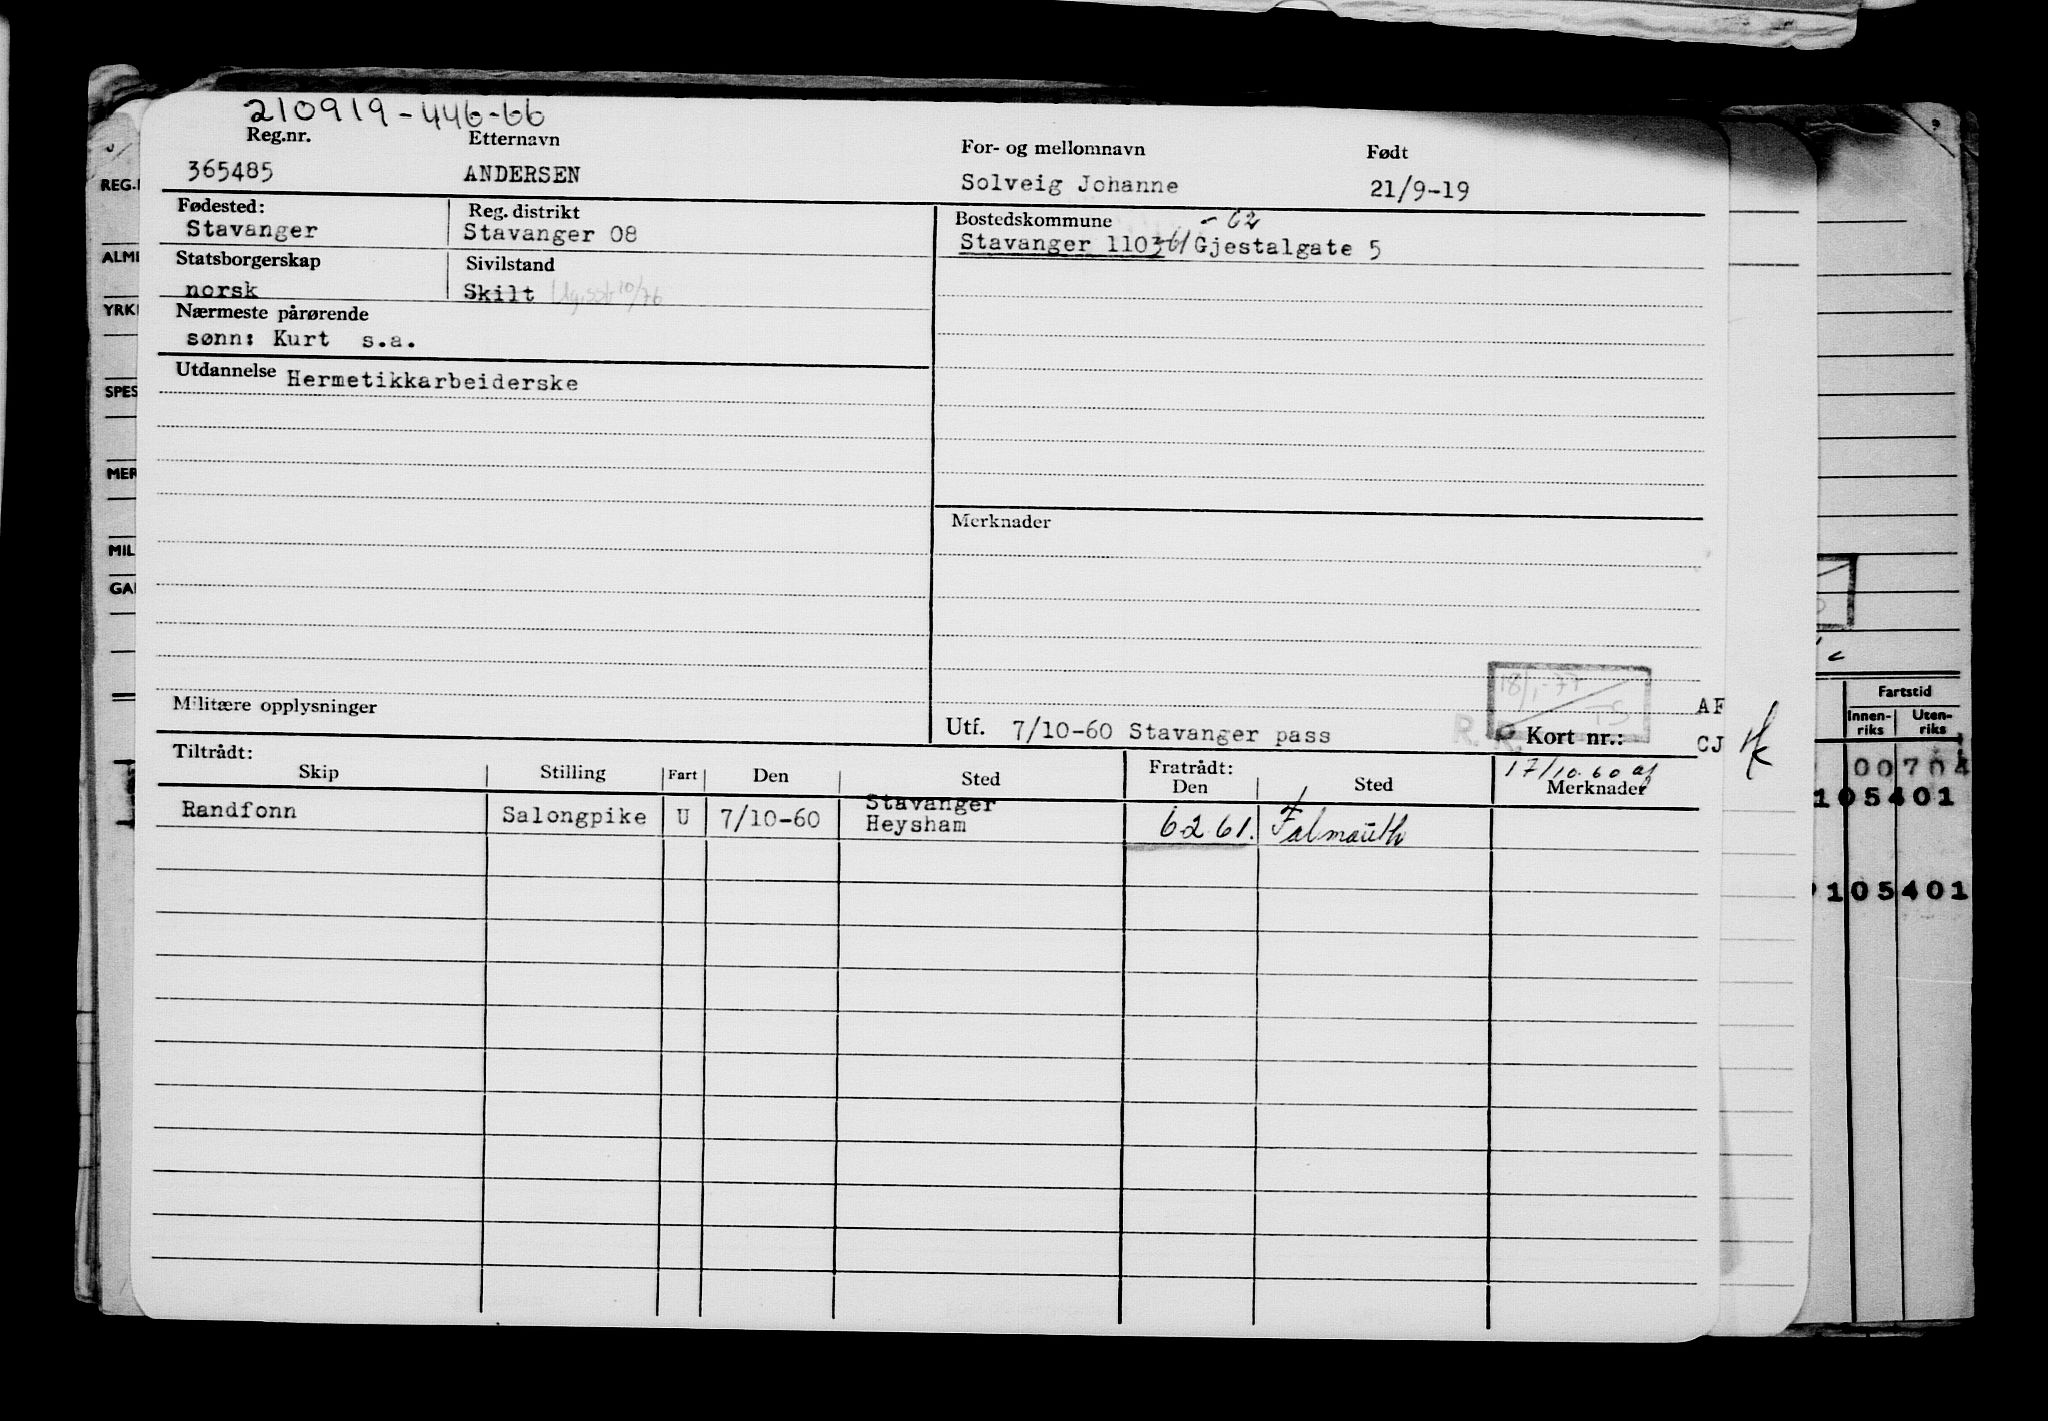 210919-446-66
Reg.nr. Etternavn For- og mellomnavn Født
365485 ANDERSEN Solveig Johanne 21/9-19
Fødested: Reg. distrikt Bostedskommune - 62
Stavanger Stavanger 08 Stavanger 1103 -61 Gjestalgate 5
Statsborgerskap Sivilstand
norsk Skilt 10/76
Nærmeste pårørende
sønn: Kurt s.a.
Utdannelse Hermetikkarbeiderske
Merknader
Militære opplysninger
18/1-77
TS
R. R.
Utf. 7/10-60 Stavanger pass Kort nr.:
AF
CJ
Tiltrådt: Fratrådt: 17/10.60 af
Skip Stilling Fart Den Sted Den Sted Merknader
Randfonn Salongpike U 7/10-60 Stavanger Heysham 6.2.61. Falmouth
REG.
ALM
YRK
SPES
MER
MIL
GA
Fartstid
Innen-riks Uten-riks
00704
105401
105401